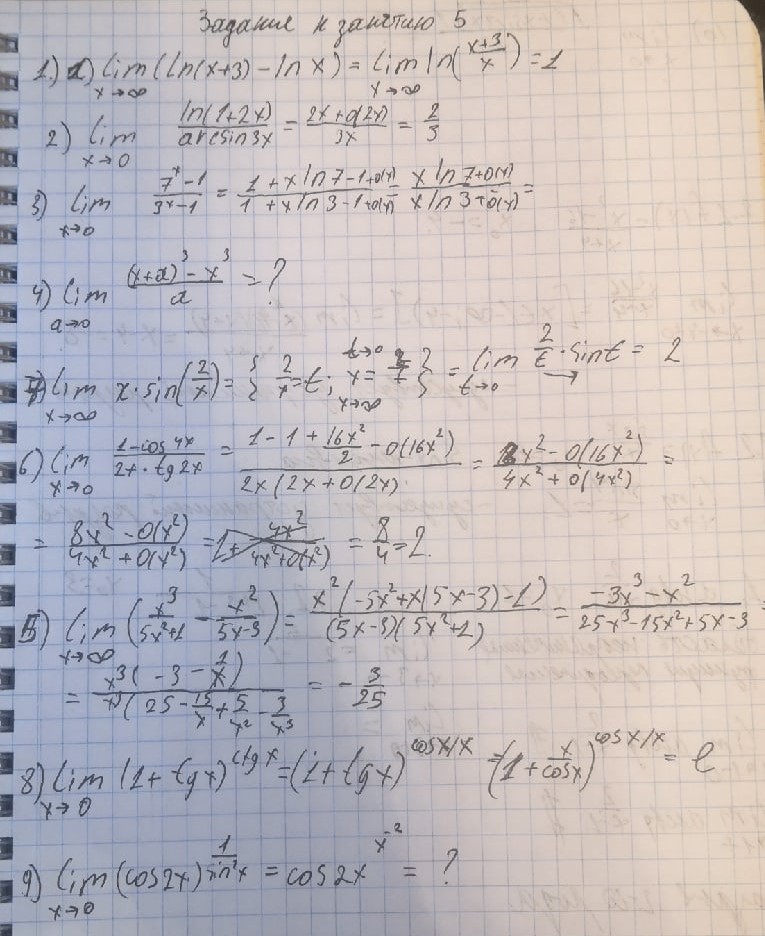 Задание к занятию 5
1.) 1) lim x→∞ (ln(x+3) - ln x) = lim x→∞ ln((x+3)/x) = 1
2) lim x→0 ln(1+2x)/arcsin3x = (2x+o(2x))/3x = 2/3
3) lim x→0 (7^x - 1)/(3^x - 1) = (1 + x ln 7 - 1 + o(x))/(1 + x ln 3 - 1 + o(x)) = (x ln 7 + o(x))/(x ln 3 + o(x)) =
4) lim a→0 ((x+a)^3 - x^3)/a = ?
lim x→∞ x · sin(2/x) = { 2/x = t; t→0 x = 2/t x→∞ } = lim t→0 2/t · sin t = 2
6) lim x→0 (1-cos 4x)/(2x · tg 2x) = (1 - 1 + 16x^2/2 - o(16x^2))/(2x(2x + o(2x)) = (8x^2 - o(16x^2))/(4x^2 + o(4x^2)) =
= (8x^2 - o(x^2))/(4x^2 + o(x^2)) = 8/4 = 2.
5) lim x→∞ (x^3/(5x^2+1) - x^2/(5x-3)) = x^2(-5x^2+x(5x-3)-1)/((5x-3)(5x^2+1)) = (-3x^3 - x^2)/(25x^3 - 15x^2 + 5x - 3) =
= x^3(-3 - 1/x)/(x^3(25 - 15/x + 5/x^2 - 3/x^3) = - 3/25
8) lim x→0 (1 + tg x)^(ctg x) = (1 + tg x)^(cosx/x) = (1 + x/cosx)^(cosx/x) = e
9) lim x→0 (cos2x)^(1/sin^2 x) = cos 2x^(x^-2) = ?